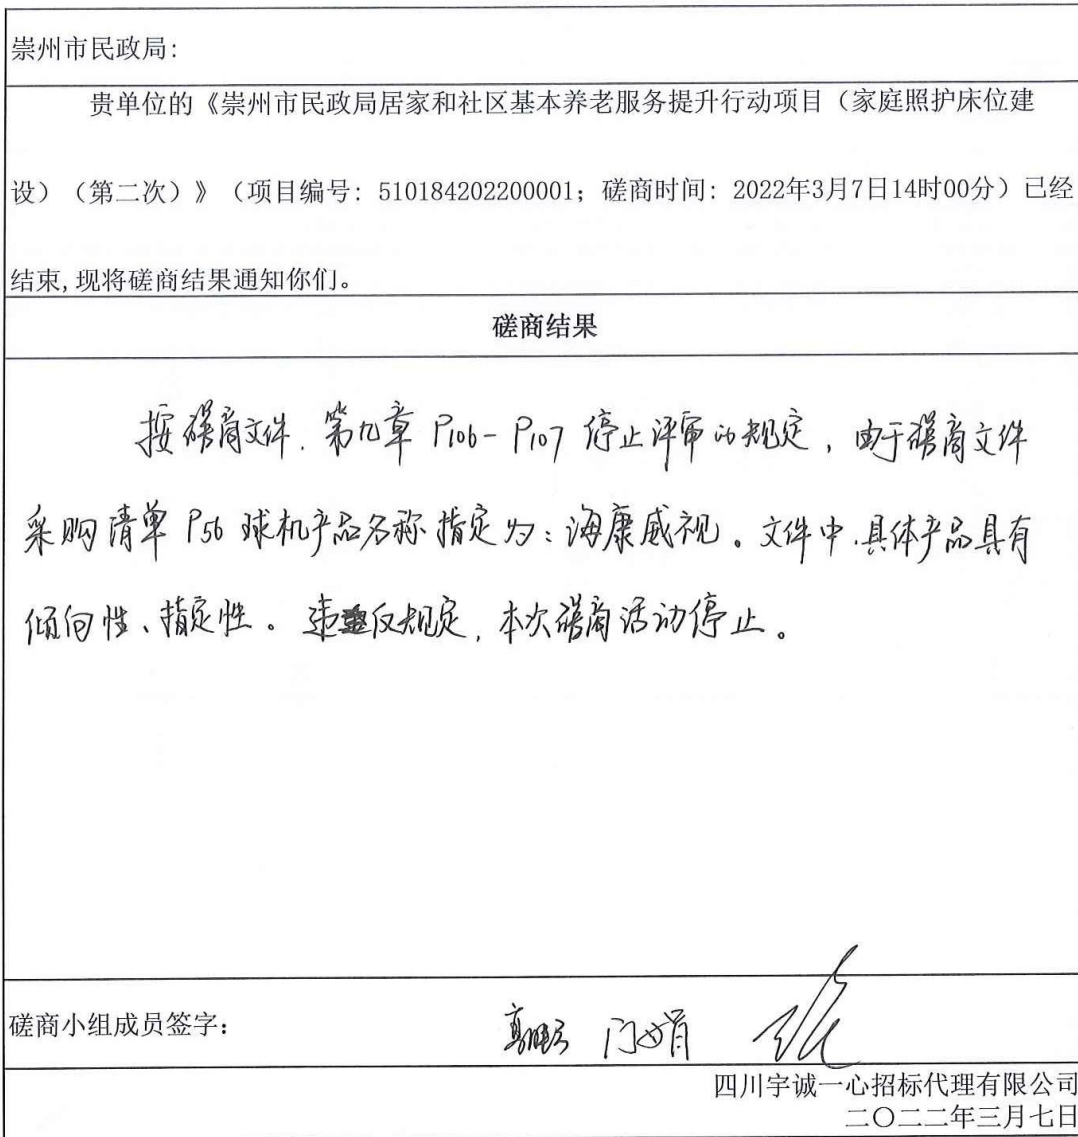 崇州市民政局:
贵单位的《崇州市民政局居家和社区基本养老服务提升行动项目（家庭照护床位建
设）（第二次）》（项目编号: 510184202200001; 磋商时间: 2022年3月7日14时00分）已经
结束,现将磋商结果通知你们。
磋商结果
按磋商文件.第九章 P106-P107 停止评审的规定,由于磋商文件
采购清单 P56 球机产品名称指定为:海康威视。文件中.具体产品具有
倾向性、指定性。违反规定,本次磋商活动停止。
磋商小组成员签字:
四川宇诚一心招标代理有限公司
二〇二二年三月七日